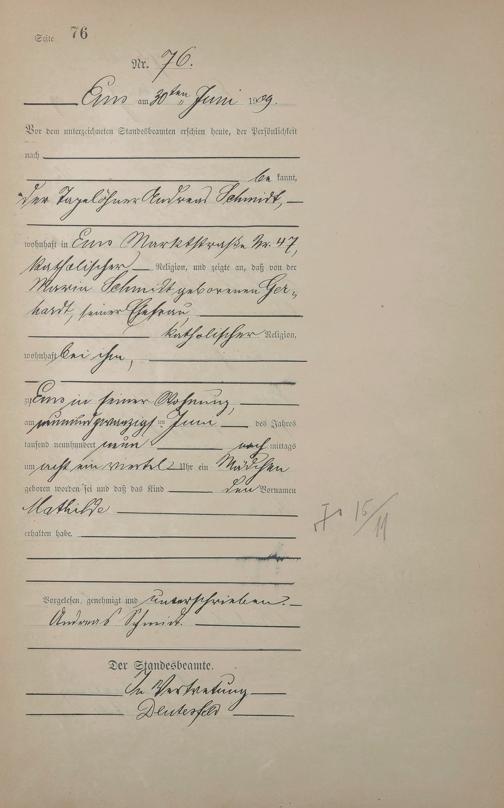 Seite 76
Nr. 76.
Ems am 30ten Juni 1909.
Vor dem unterzeichneten Standesbeamten erschien heute, der Persönlichkeit
nach
be kannt,
der Tagelöhner Andreas Schmidt,
wohnhaft in Ems Marktstraße Nr. 47,
katholischer Religion, und zeigte an, daß von der
Maria Schmidt geborenen Ger-
hardt, seiner Ehefrau,
katholischer Religion,
wohnhaft bei ihm,
zu Ems in seiner Wohnung,
am neunundzwanzigsten Juni des Jahres
tausend neunhundert neun nach mittags
um acht ein viertel Uhr ein Mädchen
geboren worden sei und daß das Kind den Vornamen
Mathilde
erhalten habe.
15/11
Vorgelesen, genehmigt und unterschrieben.
Andreas Schmidt.
Der Standesbeamte.
In Vertretung